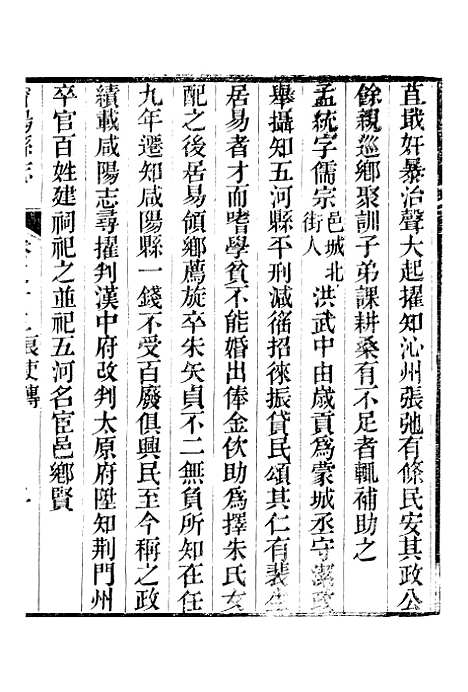 直戢奸暴治聲大起擢知沁州張弛有條民安其政公
餘親巡鄉聚訓子弟課耕桑有不足者輒補助之
孟統字儒宗邑城北街人洪武中由歲貢為蒙城丞守潔政
舉攝知五河縣平刑減徭招徠振貸民頌其仁有裴生
居易者才而嗜學貧不能婚出俸金佽助為擇朱氏女
配之後居易領鄉薦旋卒朱矢貞不二無負所知在任
九年遷知咸陽縣一錢不受百廢俱興民至今稱之政
績載咸陽志尋擢判漢中府改判太原府陞知荆門州
卒官百姓建祠祀之並祀五河名宦邑鄉賢
陽縣志
吏傳